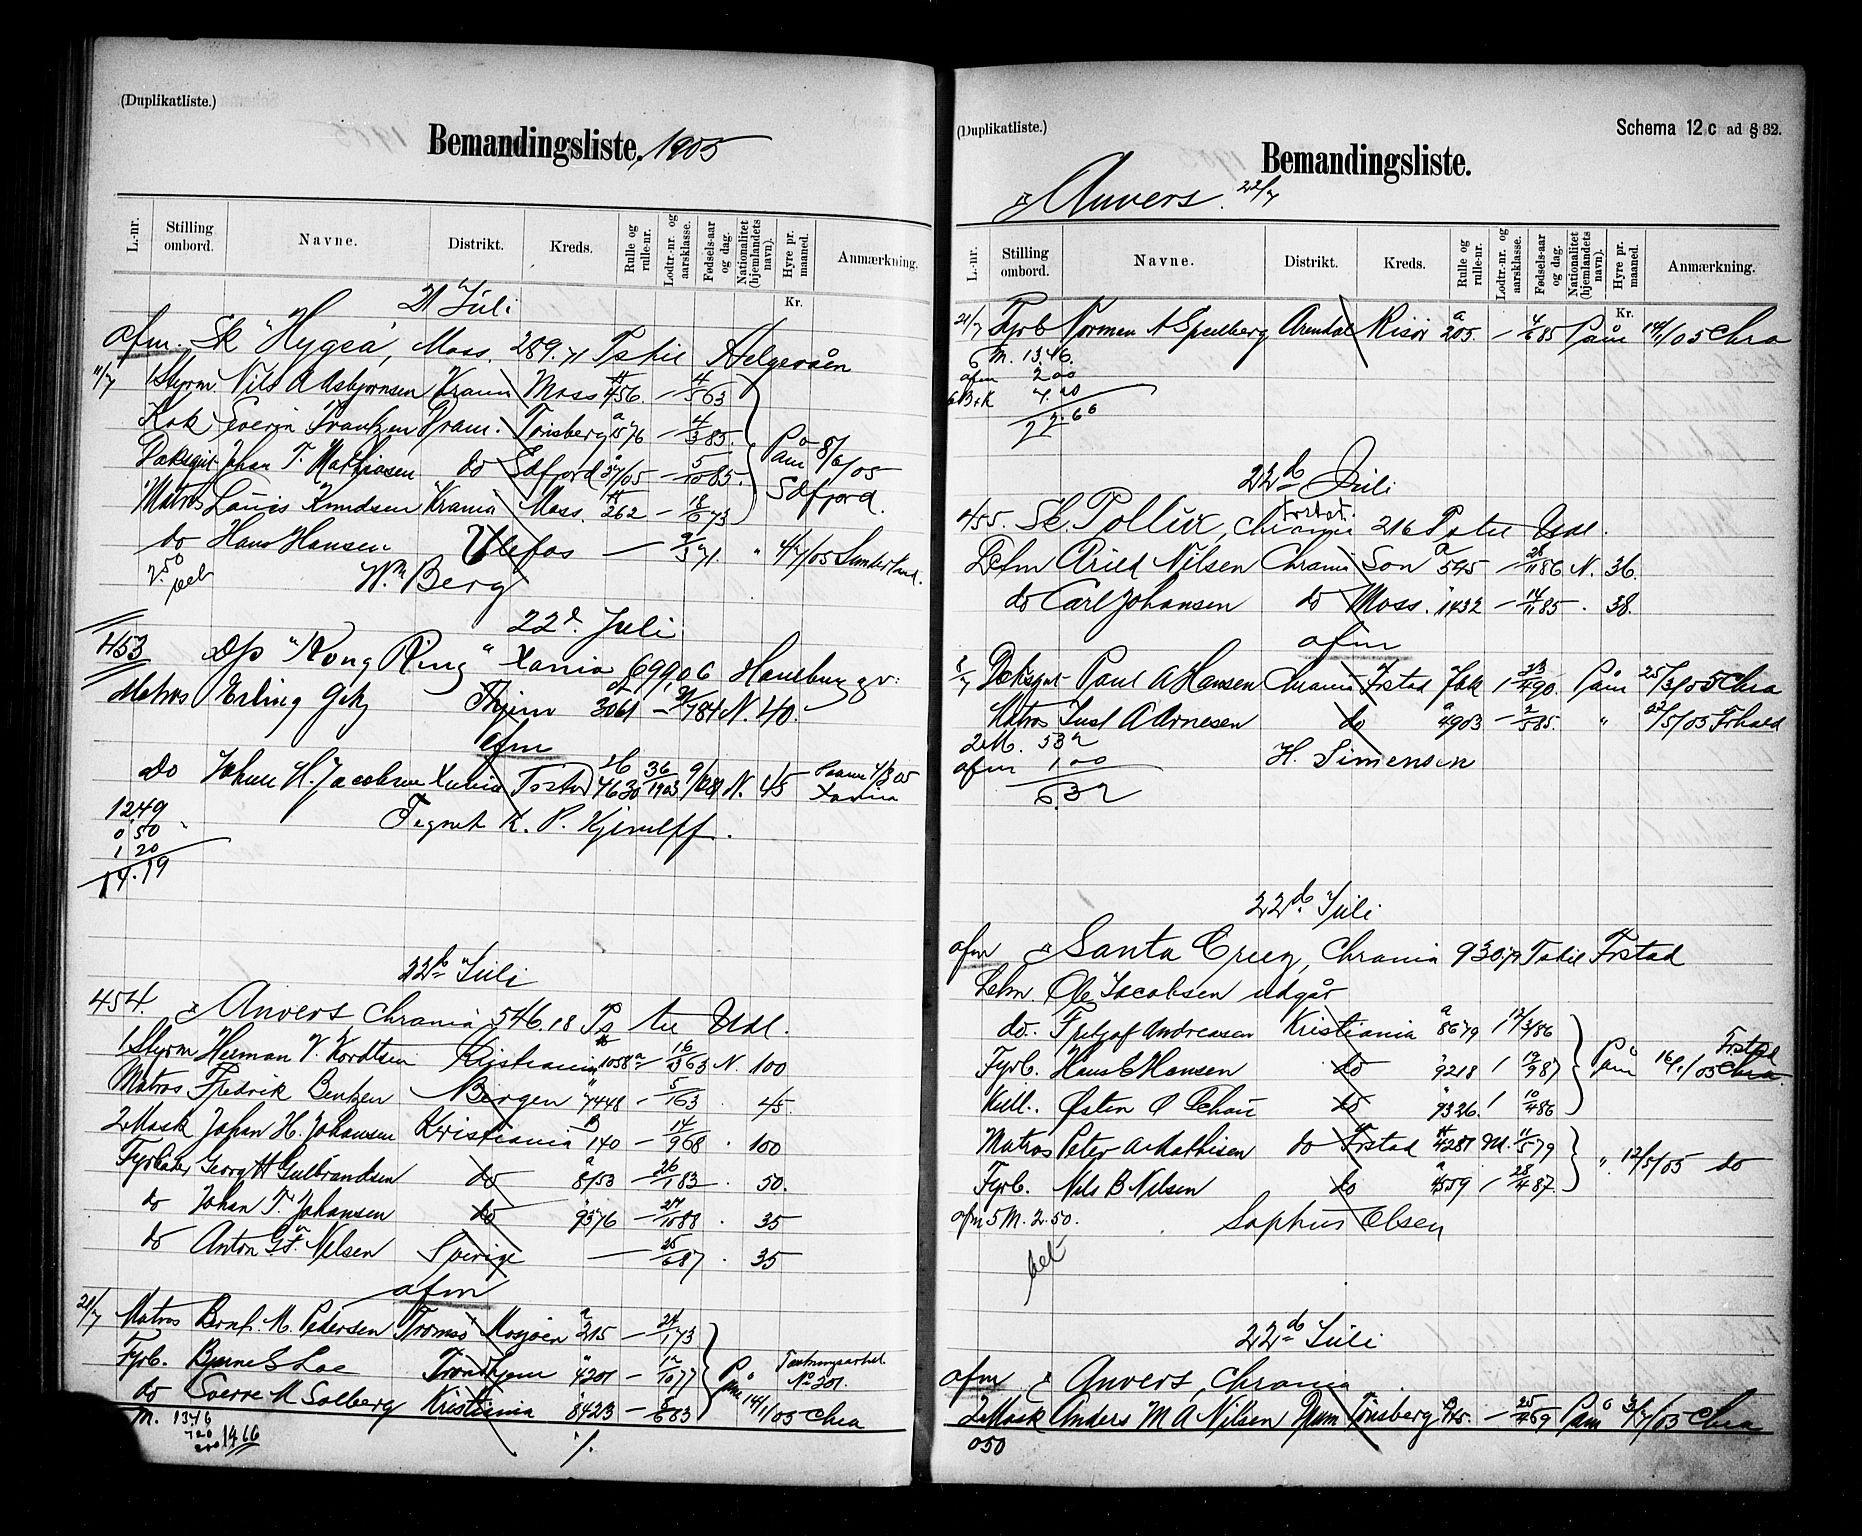 (Duplikatliste.)
Bemandingsliste, 1905
L.-nr. Stilling ombord. Navne. Distrikt. Kreds. Rulle og rulle-nr. Lodtr.-nr. og aarsklasse. Fødsels-aar og dag. Nationalitet (hjemlandets navn). Hyre pr. maaned. Anmærkning.
Kr.
21 Juli
afm. Sk "Hygea", Moss. 289.71 Ts til Helgeroen
11/7 1 Styrm Nils A Asbjørnsen Krania Moss 456. — 4/5 63
Kok Sverin Frantzen Dram. Tønsberg 576 — 4/3 85.
Dæksgut Johan T. Mathiasen do Sdfjord 37/05 — 5/10 85. Påm 8/6/05 Sdfjord.
Matros Louis Knudsen Krania Moss. 262 — 18/6 73
do Hans Hansen Ulefos — 9/3 71. " 4/7/05 Sunderland.
2.50 bet
Wm Berg
22d Juli
453 D/s "Kong Ring" Xania 699,06 Hamburg gv:
Matros Erling Getz Thjem 3061 — 21/7 84 N. 40.
afm
do Johan H. Jacobsen Xania Frstad 4630 36/1903 9/12 81 N. 45 Paam 4/3 05 Xania
1249
0,50
1 20
14.19
Tegnet K. P. Kjerulff.
22de Juli
454. Anvers Chrania 546.18 Ts til Udl.
1 Styrm Herman V. Kordtsen Kristiania 1058 — 16/3 63 N. 100
Matros Fredrik Bentzen Bergen 7448 — 5/1 63 . 45.
2 Mask Johan H. Johansen Kristiania 140 — 14/9 68 . 100
Fyrbøder Georg H Gulbrandsen do 8153 — 26/1 83 . 50.
do Johan T. Johansen do 9376 — 27/10 88 . 35
do Anton G. F. Nilsen Sverige — 25/6 87 . 35
afm
21/7 Matros Bernh. M. Pedersen Tromsø Mosjøen 215 — 24/1 73
Fyrb. Bjarne S Loe Trondhjem 4201 — 12/10 77 Påm 14/1/05 Chra
do Sverre M Solberg Kristiania 8423 — 6/6 83
M. 1346
1466
%.
(Duplikatliste.)
Schema 12 c ad § 32.
Bemandingsliste.
Anvers. 22/7
L.-nr. Stilling ombord. Navne. Distrikt. Kreds. Rulle og rulle-nr. Lodtr.-nr. og aarsklasse. Fødsels-aar og dag. Nationalitet (hjemlandets navn). Hyre pr. maaned. Anmærkning.
Kr.
21/7 Fyrb Norman A Speilberg Arendal Risør 205. — 4/6 85 Påm 14/1/05 Chra
6 M. 1346.
afm 2 00
22.66
22de Juli
455. Sk. Pollux, Chrania Frstat. 216 Ts til Udl.
Dkm Arild Nilsen Chrania Son 545 — 28/11 86 N. 36.
do Carl Johansen do Moss. 1432 — 14/11 85 . 38.
afm
8/7 Dæksgut Paul A Hansen Chrania Frstad Jak 1 23/4 90. Påm 25/3/05 Chra
Matros Just A Arnesen do 4903 — 2/5 85. " 22/5/05 Frhald
2 M. 532
afm 1 00
6.32
H. Simensen
22de Juli
afm Santa Cruz, Chrania 930,79 Ts til Frstad
Lehn. Ole Jacobsen udgår
do. Fritjof Andreassen Kristiania 8679 1 12/3 86
Fyrb. Hans C Hansen do 9218 1 19/9 87 Påm 16/1/05 Frstad Chra
Kull. Østen O Schau do 9326. 1 10/4 86
Matros Peter A Mathisen do Frstad 4281 M. 11/5 79
Fyrb. Nils B Nilsen do 4559 1 28/4 87. " 12/5/05 do
afm 5 M. 2.50.
Sophus Olsen
bet
22de Juli
afm Anvers, Chrania
2 Mask Anders M A Nilsen Dram Tønsberg 45. — 25/4 69 Påm 3/7/05 Chra
050